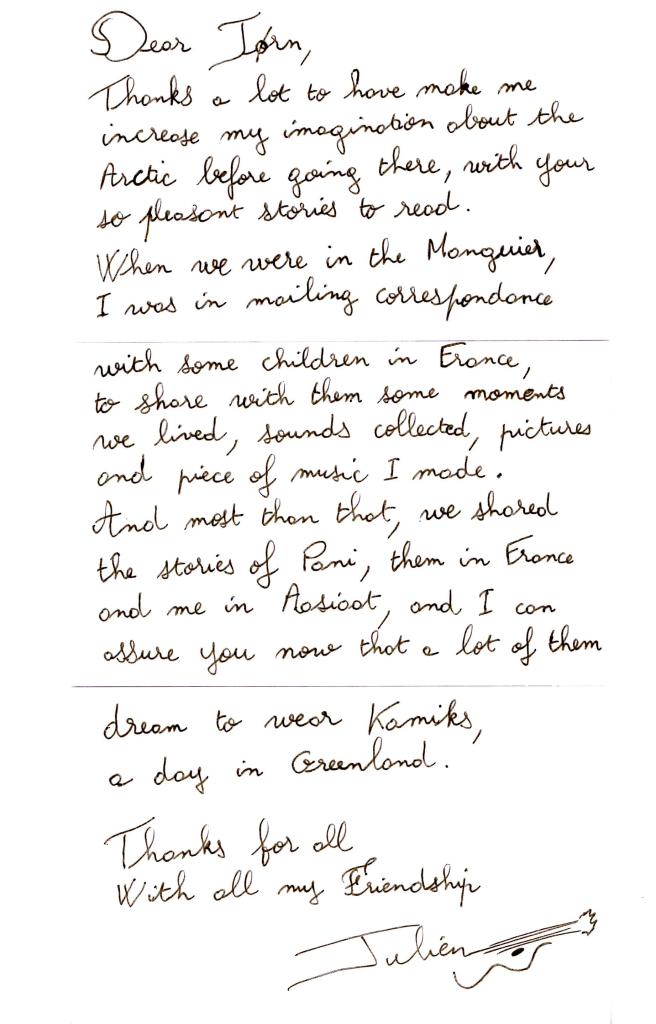 Dear Jørn,
Thanks a lot to have make me
increase my imagination about the
Arctic before going there, with your
so pleasant stories to read.
When we were in the Manguier,
I was in mailing correspondance
with some children in France,
to share with them some moments
we lived, sounds collected, pictures
and piece of music I made.
And most than that, we shared
the stories of Pani, them in France
and me in Aasiaat, and I can
assure you now that a lot of them
dream to wear Kamiks,
a day in Greenland.
Thanks for all
With all my Friendship
Julien